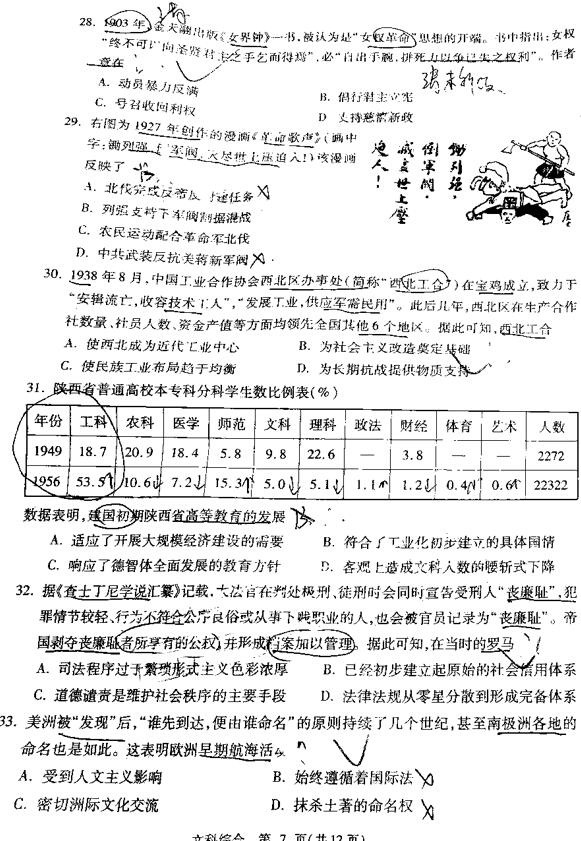 28. 1903 年, 金天翮出版《女界钟》一书,被认为是“女权革命”思想的开端。书中指出:女权
“终不可以向圣贤君主之手乞而得焉”,必“自出手腕,拼死力以争已失之权利”。作者
意在
A. 动员暴力反满
B. 倡行君主立宪
C. 号召收回利权
D. 支持慈禧新政
29. 右图为 1927 年创作的漫画《革命歌声》(画中
字:锄列强,倒军阀,
迫入!)该漫画
反映了
锄列强,
倒军阀,
迫人!
A. 北伐完成反帝反封建任务
B. 列强支持下军阀割据混战
C. 农民运动配合革命军北伐
D. 中共武装反抗美蒋新军阀
30. 1938 年 8 月,中国工业合作协会西北区办事处(简称“西北工合”)在宝鸡成立,致力于
“安辑流亡,收容技术工人”,“发展工业,供应军需民用”。此后几年,西北区在生产合作
社数量、社员人数、资金产值等方面均领先全国其他 6 个地区。据此可知,西北工合
A. 使西北成为近代工业中心
B. 为社会主义改造奠定基础
C. 使民族工业布局趋于均衡
D. 为长期抗战提供物质支持
31. 陕西省普通高校本专科分科学生数比例表(%)
年份 工科 农科 医学 师范 文科 理科 政法 财经 体育 艺术 人数
1949 18.7 20.9 18.4 5.8 9.8 22.6 — 3.8 — — 2272
1956 53.5 10.6 7.2 15.3 5.0 5.1 1.1 1.2 0.4 0.6 22322
数据表明,建国初期陕西省高等教育的发展
A. 适应了开展大规模经济建设的需要
B. 符合了工业化初步建立的具体国情
C. 响应了德智体全面发展的教育方针
D. 客观上造成文科人数的腰斩式下降
32. 据《查士丁尼学说汇纂》记载,大法官在判处极刑、徒刑时会同时宣告受刑人“丧廉耻”,犯
罪情节较轻、行为不符合公序良俗或从事下贱职业的人,也会被官员记录为“丧廉耻”。帝
国剥夺丧廉耻者所享有的公权,并形成档案加以管理。据此可知,在当时的罗马
A. 司法程序过于繁琐形式主义色彩浓厚
B. 已经初步建立起原始的社会信用体系
C. 道德谴责是维护社会秩序的主要手段
D. 法律法规从零星分散到形成完备体系
33. 美洲被“发现”后,“谁先到达,便由谁命名”的原则持续了几个世纪,甚至南极洲各地的
命名也是如此。这表明欧洲早期航海活动
A. 受到人文主义影响
B. 始终遵循着国际法
C. 密切洲际文化交流
D. 抹杀土著的命名权
文科综合 第 7 页(共12页)